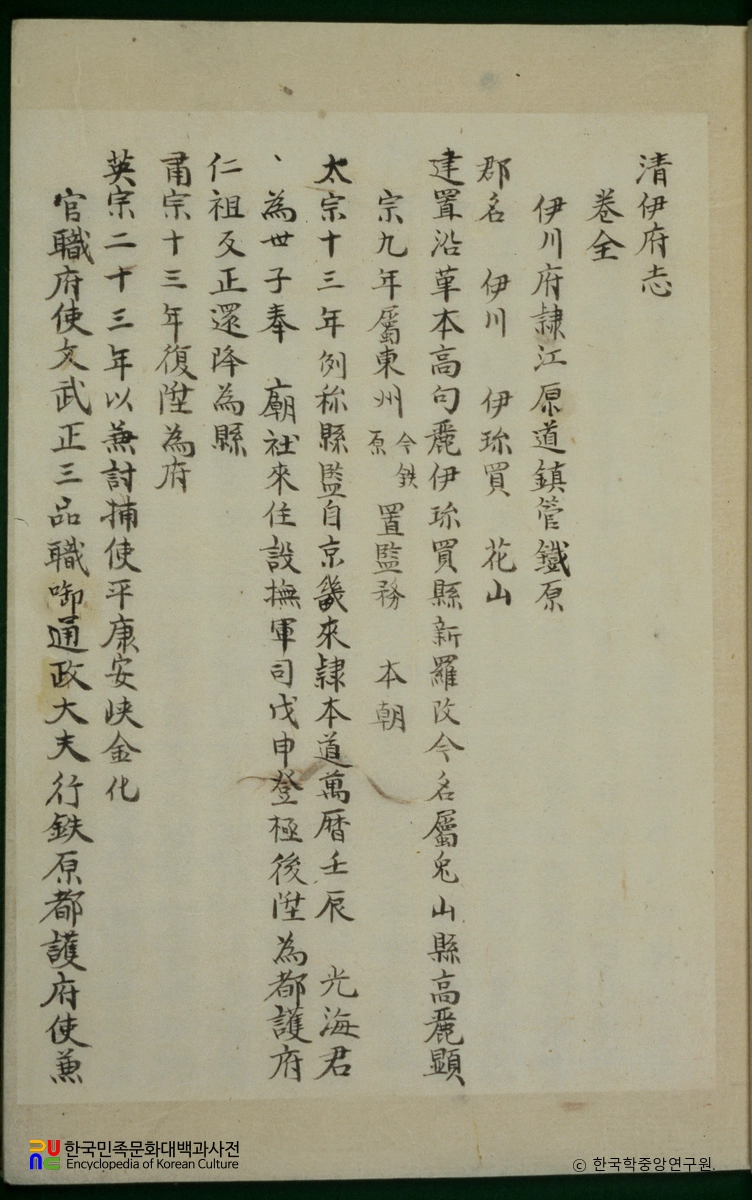 清伊府志
卷全
伊川府隷江原道鎮管鐵原
郡名 伊川 伊珎買 花山
建置沿革本高句麗伊珎買縣新羅改今名屬兎山縣高麗顯
宗九年屬東州今鉄原置監務 本朝
太宗十三年例称縣監自京畿來隷本道萬曆壬辰 光海君
、為世子奉 廟社來住設撫軍司戊申登極後陞為都護府
仁祖反正還降為縣
肅宗十三年復陞為府
英宗二十三年以兼討捕使平康安峽金化
官職府使文武正三品職啣通政大夫行鉄原都護府使兼
한국민족문화대백과사전
Encyclopedia of Korean Culture
ⓒ 한국학중앙연구원.